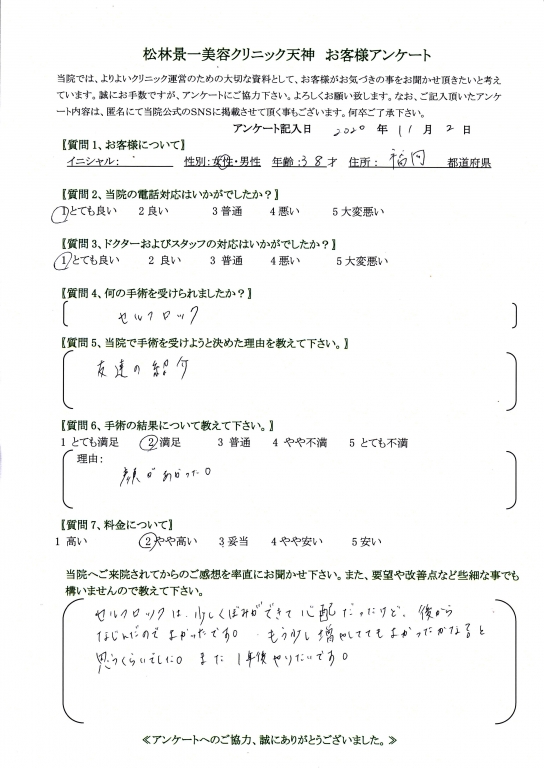 松林景一美容クリニック天神 お客様アンケート
当院では、よりよいクリニック運営のための大切な資料として、お客様がお気づきの事をお聞かせ頂きたいと考え
ています。誠にお手数ですが、アンケートにご協力下さい。よろしくお願い致します。なお、ご記入頂いたアンケ
ート内容は、匿名にて当院公式のSNSに掲載させて頂く事もございます。何卒ご了承下さい。
アンケート記入日 2020 年 11 月 2 日
〖質問 1、お客様について〗
イニシャル: 性別:女性・男性 年齢:38才 住所: 福岡 都道府県
〖質問 2、当院の電話対応はいかがでしたか?〗
1とても良い 2 良い 3 普通 4 悪い 5 大変悪い
〖質問 3、ドクターおよびスタッフの対応はいかがでしたか?〗
1とても良い 2 良い 3 普通 4 悪い 5 大変悪い
〖質問 4、何の手術を受けられましたか?〗
セルフロック
〖質問 5、当院で手術を受けようと決めた理由を教えて下さい。〗
友達の紹介
〖質問 6、手術の結果について教えて下さい。〗
1 とても満足 2 満足 3 普通 4 やや不満 5 とても不満
理由:
顔があがった。
〖質問 7、料金について〗
1 高い 2 やや高い 3 妥当 4 やや安い 5 安い
当院へご来院されてからのご感想を率直にお聞かせ下さい。また、要望や改善点など些細な事でも
構いませんので教えて下さい。
セルフロックは、少しくぼみができて心配だったけど、後から
なじんだのでよかったです。もう少し増やしてもよかったかなぁと
思うくらいでした。また1年後やりたいです。
≪アンケートへのご協力、誠にありがとうございました。≫